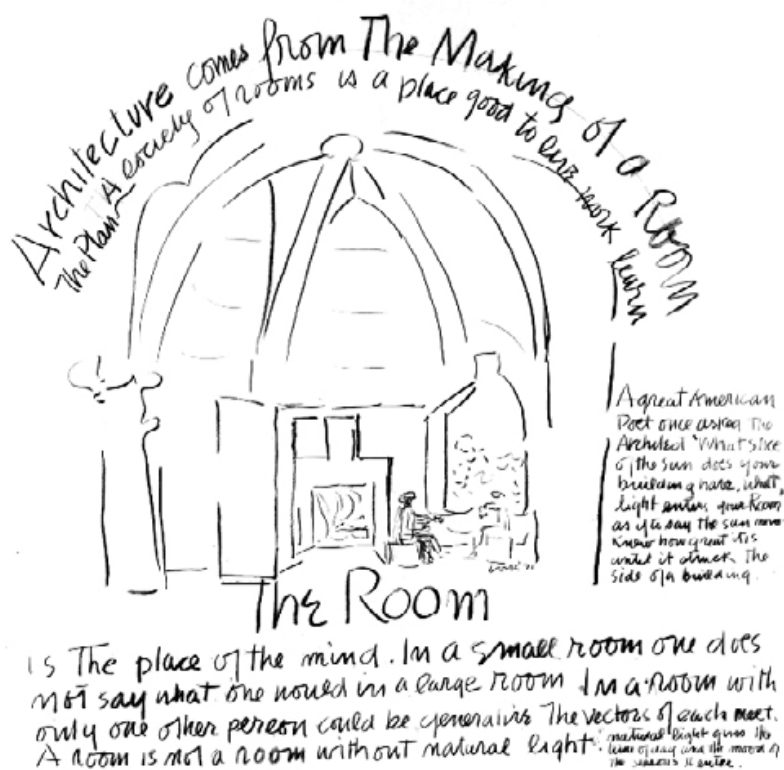 Architecture comes from The Making of a Room
The Plan A society of rooms is a place good to live work learn
A great American
Poet once asked The
Architect 'What slice
of the sun does your
building have, what
light enters your Room
as if to say the sun never
knew how great it is
until it struck the
side of a building.
The Room
is The place of the mind. In a small room one does
not say what one would in a large room In a room with
only one other person could be generative The vectors of each meet.
A room is not a room without natural light. natural light gives the
time of day and the mood of
the seasons to enter.